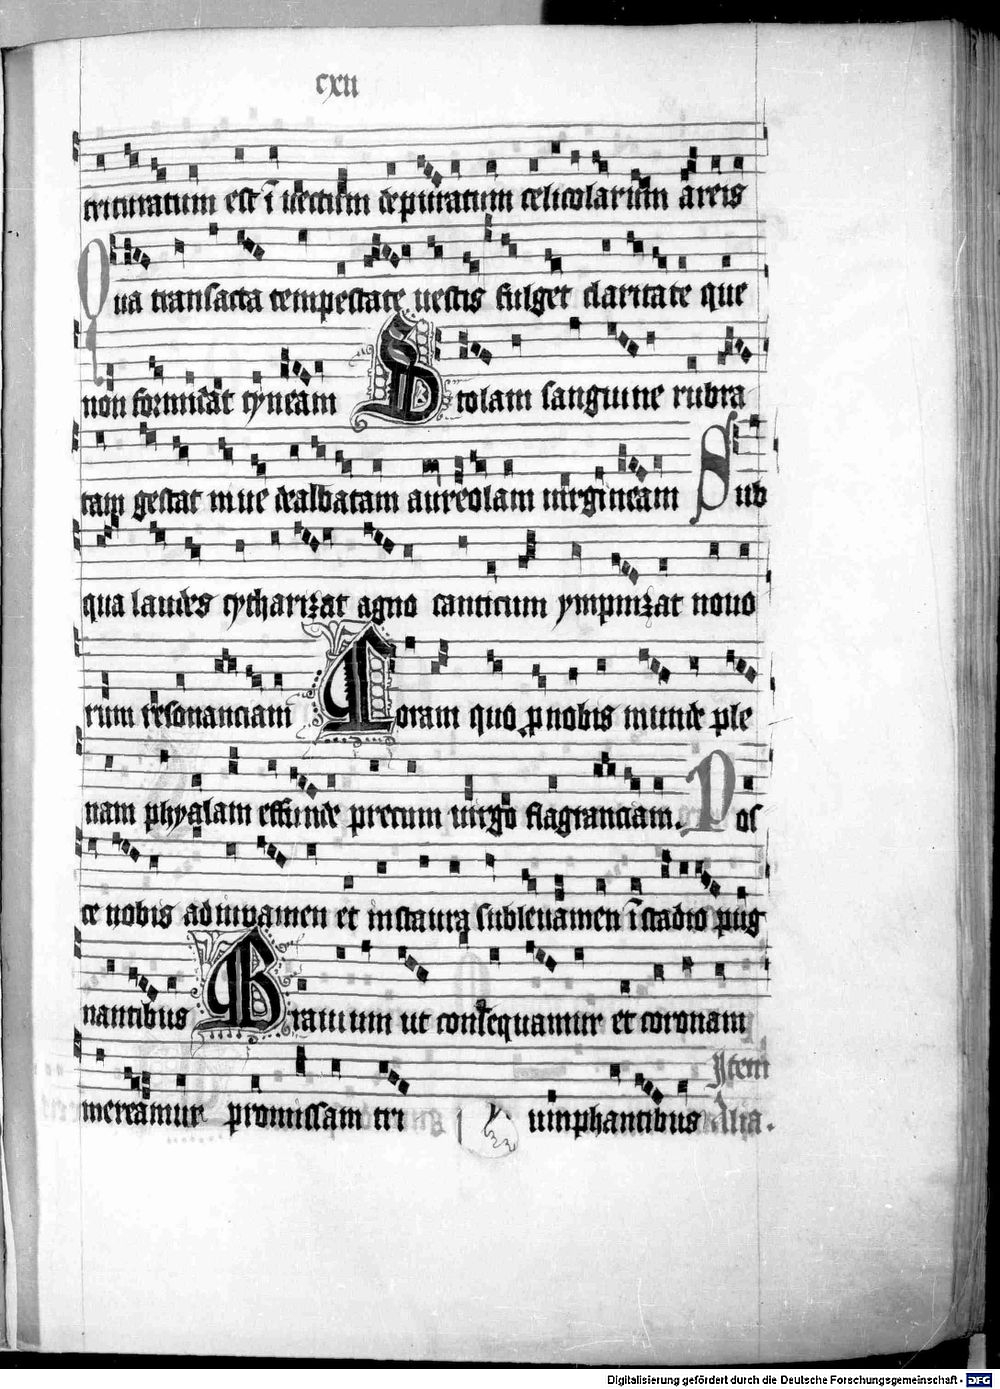 cxii
trituratum est ī uectum depuratum celicolarium areis
Qua transacta tempestate uestis fulget claritate que
non formidat cyneam Stolam sanguine rubra
tam gestat niue dealbatam aureolam uirgineam Sub
qua laudes cytharizat agno canticum ympnizat nouo
rum resonanciam Coram quo p nobis munde ple
nam phyalam effunde precum uirgo flagranciam. Pos
ce nobis ad iuuamen et instaura subleuamen ī stadio pug
nantibus Brauium ut consequamur et coronam
Item
mereamur promissam tri uinphantibus Alia.
Digitalisierung gefördert durch die Deutsche Forschungsgemeinschaft - DFG